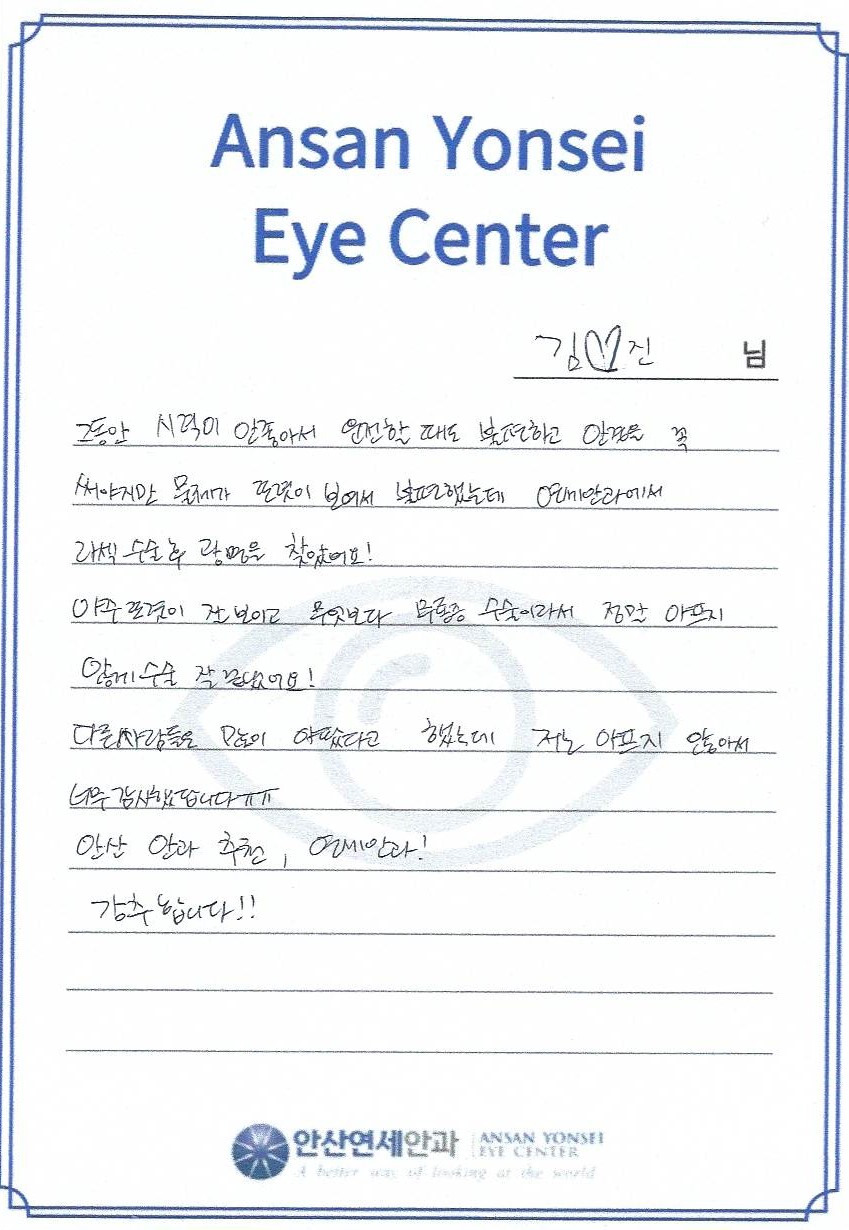 Ansan Yonsei
Eye Center
김♡진 님
그동안 시력이 안좋아서 운전할 때도 불편하고 안경을 꼭
써야지만 물체가 또렷이 보여서 불편했는데 연세안과에서
라섹 수술 후 광명을 찾았어요!
아주 또렷이 잘 보이고 무엇보다 무통증 수술이라서 정말 아프지
않게 수술 잘 끝냈어요!
다른사람들은 많이 아팠다고 했는데 저는 아프지 않아서
너무 감사했답니다ㅠㅠ
안산 안과 추천, 연세안과!
강추 합니다!!
안산연세안과 ANSAN YONSEI
EYE CENTER
A better way of looking at the world